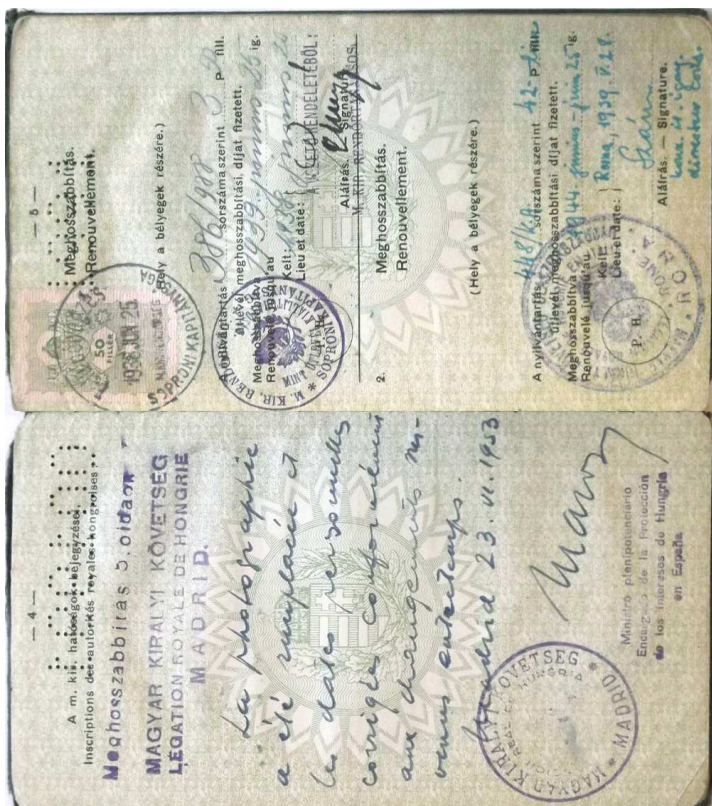 — 4 —
A m. kir. hatóságok bejegyzései.
Inscriptions des autorités royales hongroises.
Meghosszabbitás 5. oldalon
MAGYAR KIRÁLYI KÖVETSÉG
LEGATION ROYALE DE HONGRIE
MADRID.
La photographie
a été remplacée et
les dates personnelles
corrigées conformément
aux changements sur-
venus entretemps.
Madrid 23. VI. 1953
Ministro plenipotenciario
Encargado de la Protección
de los Intereses de Hungría
en España
MAGYAR KIRÁLYI KÖVETSÉG * MADRID *
— 5 —
Meghosszabbítás.
Renouvellement.
(Hely a bélyegek részére.)
50
FILLÉR
1938 JUN 25
SOPRONI KAPITÁNYSÁGA
A nyilvántartás 386/1938 sorszáma szerint 3 P — fill.
útlevél meghosszabbítási díjat fizetett.
Meghosszabbítva 1939 junius 25 ig.
Renouvelé jusqu'au
Kelt:
Lieu et date:
A VEZETŐ RENDELETÉBŐL:
Aláírás. — Signature.
M. KIR. RENDŐRTANÁCSOS.
2.
Meghosszabbítás.
Renouvellement.
(Hely a bélyegek részére.)
A nyilvántartás 448/ka. sorszáma szerint 42.- P. fill.
útlevél meghosszabbítási díjat fizetett.
Meghosszabbítva 1944 junius 25 ig.
Renouvelé jusqu'au
Kelt: Roma, 1939. V. 28.
Lieu et date:
P. H.
Aláírás. — Signature.
RÓMA